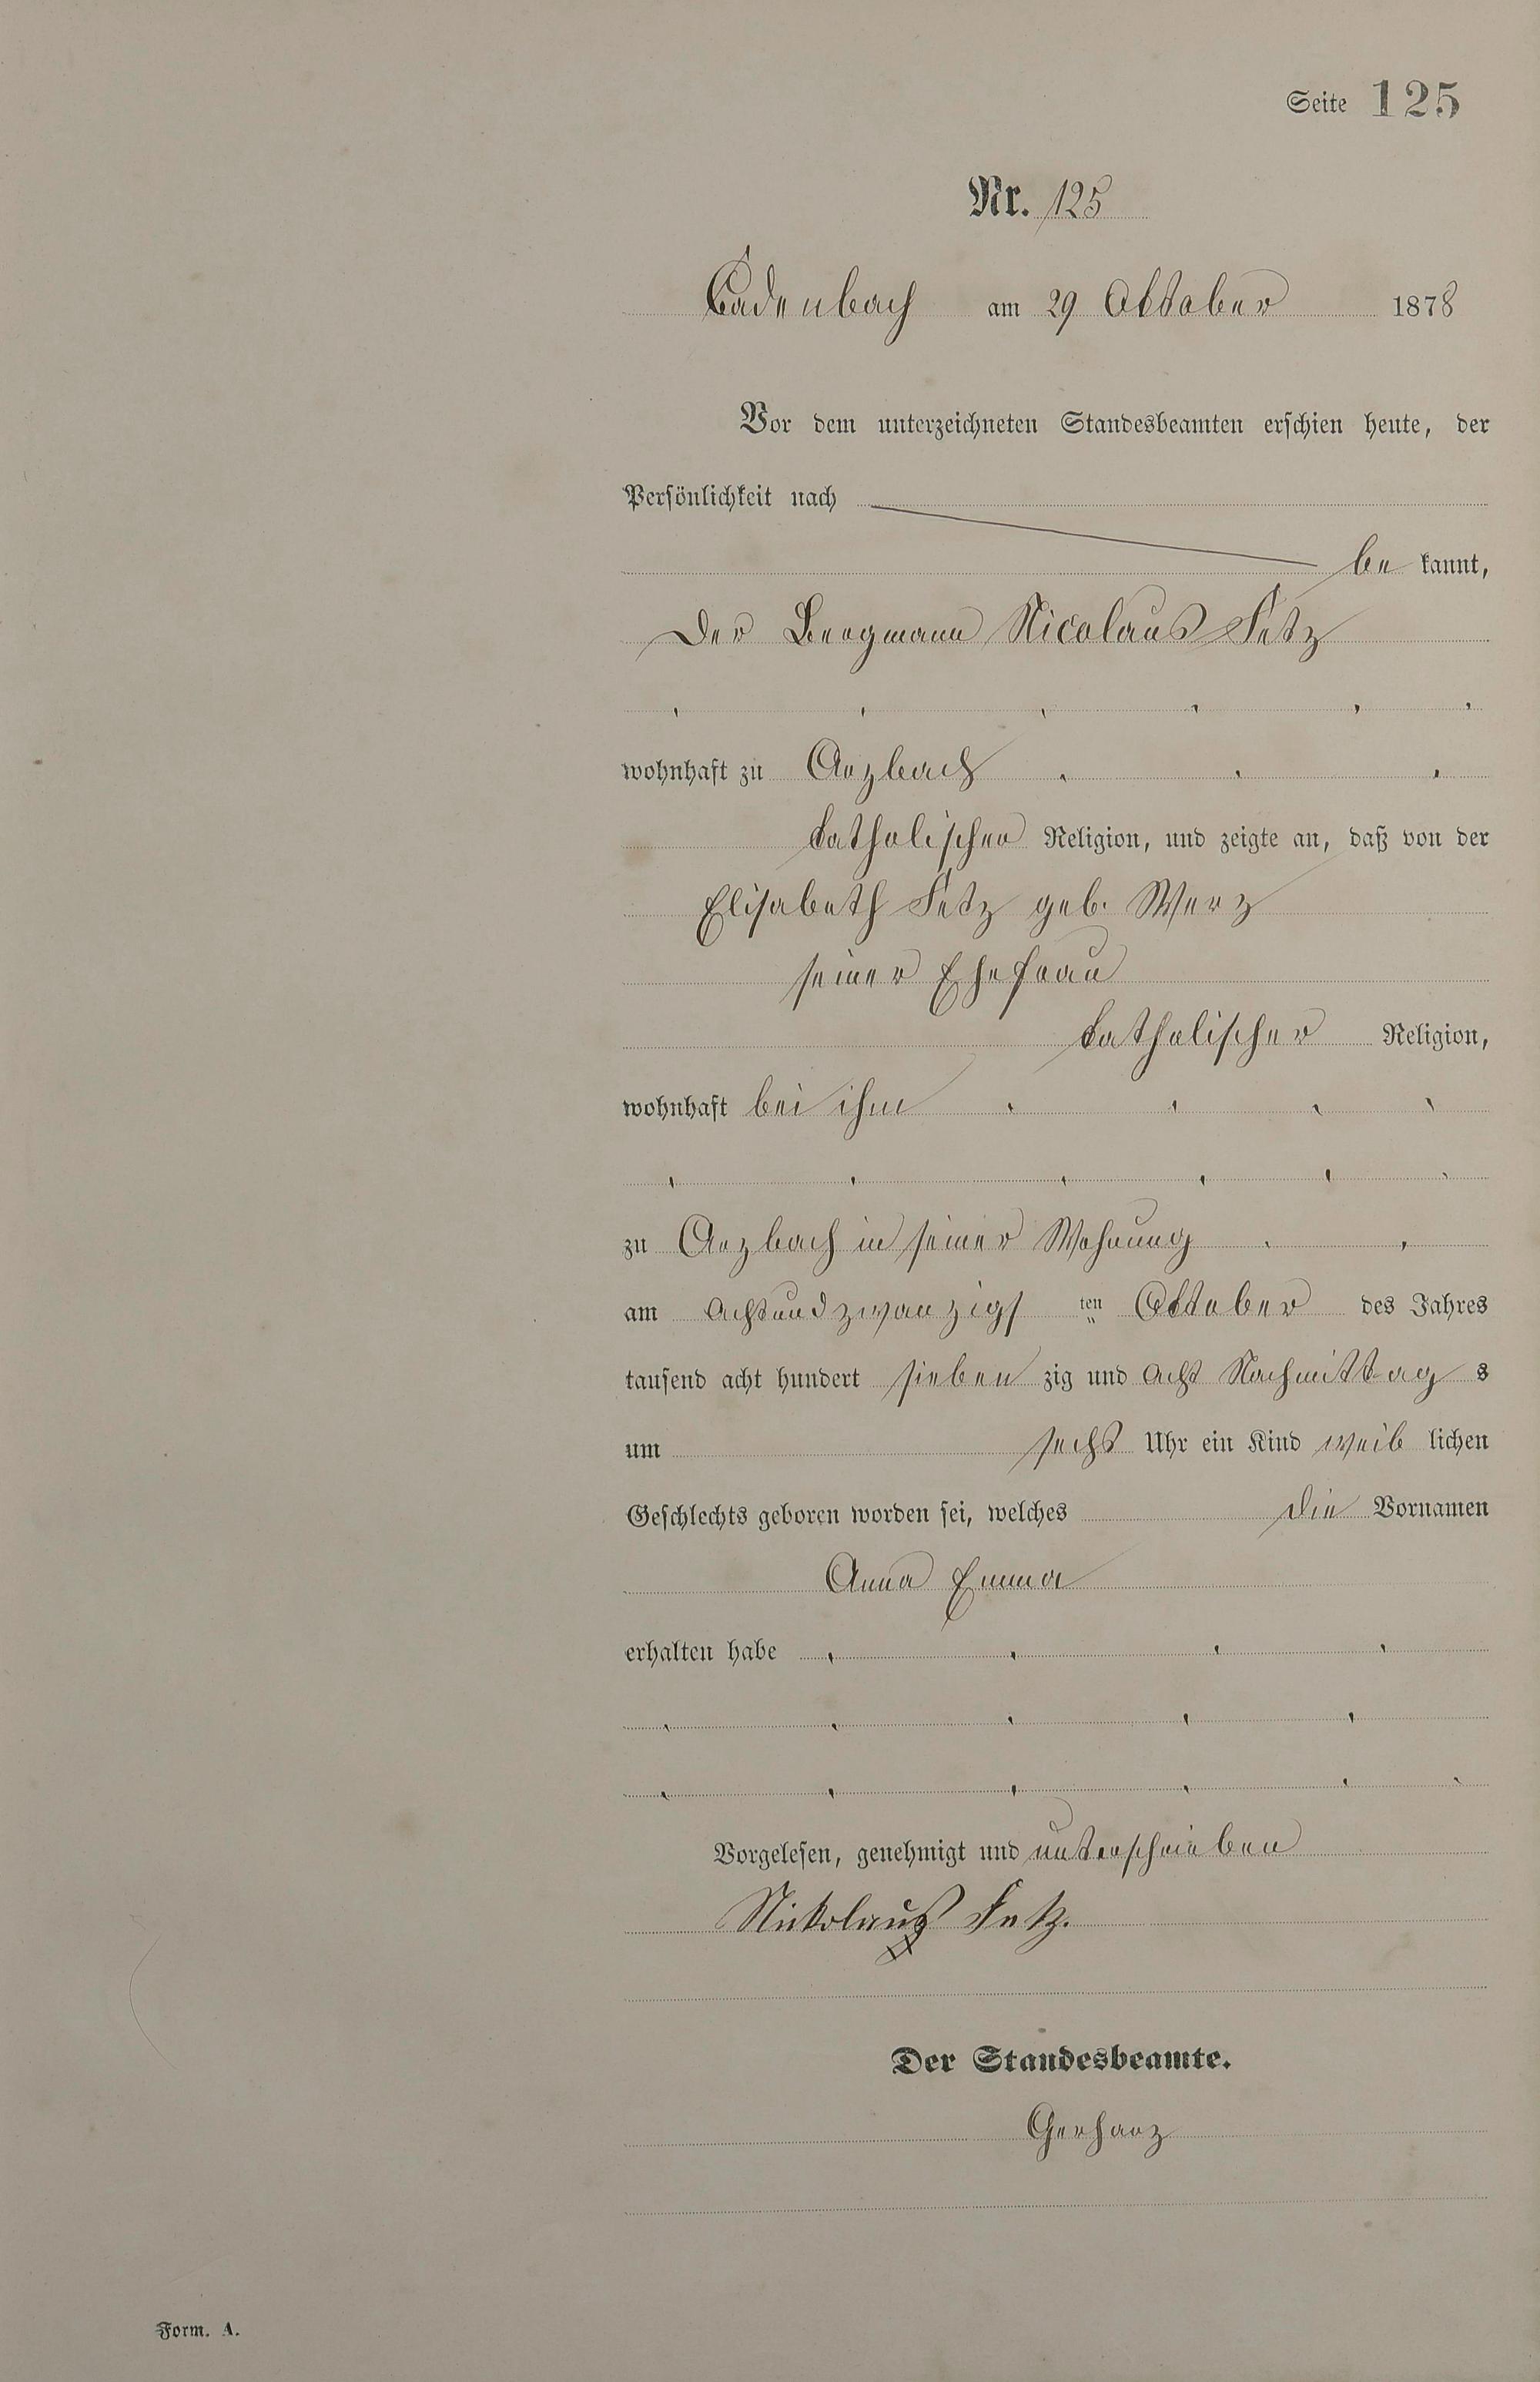 Seite 125
Nr. 125
Cadenbach am 29 Oktober 1878
Vor dem unterzeichneten Standesbeamten erschien heute, der
Persönlichkeit nach
be kannt,
Der Bergmann Nicolaus Fetz
wohnhaft zu Arzbach
katholischer Religion, und zeigte an, daß von der
Elisabeth Fetz geb. Werz
seiner Ehefrau
katholischer Religion,
wohnhaft bei ihm
zu Arzbach in seiner Wohnung
am achtundzwanzigs ten Oktober des Jahres
tausend acht hundert sieben zig und acht Nachmittag s
um sechs Uhr ein Kind weib lichen
Geschlechts geboren worden sei, welches die Vornamen
Anna Emma
erhalten habe
Vorgelesen, genehmigt und unterschrieben
Nickolaus Fetz.
Der Standesbeamte.
Gerharz
Form. A.